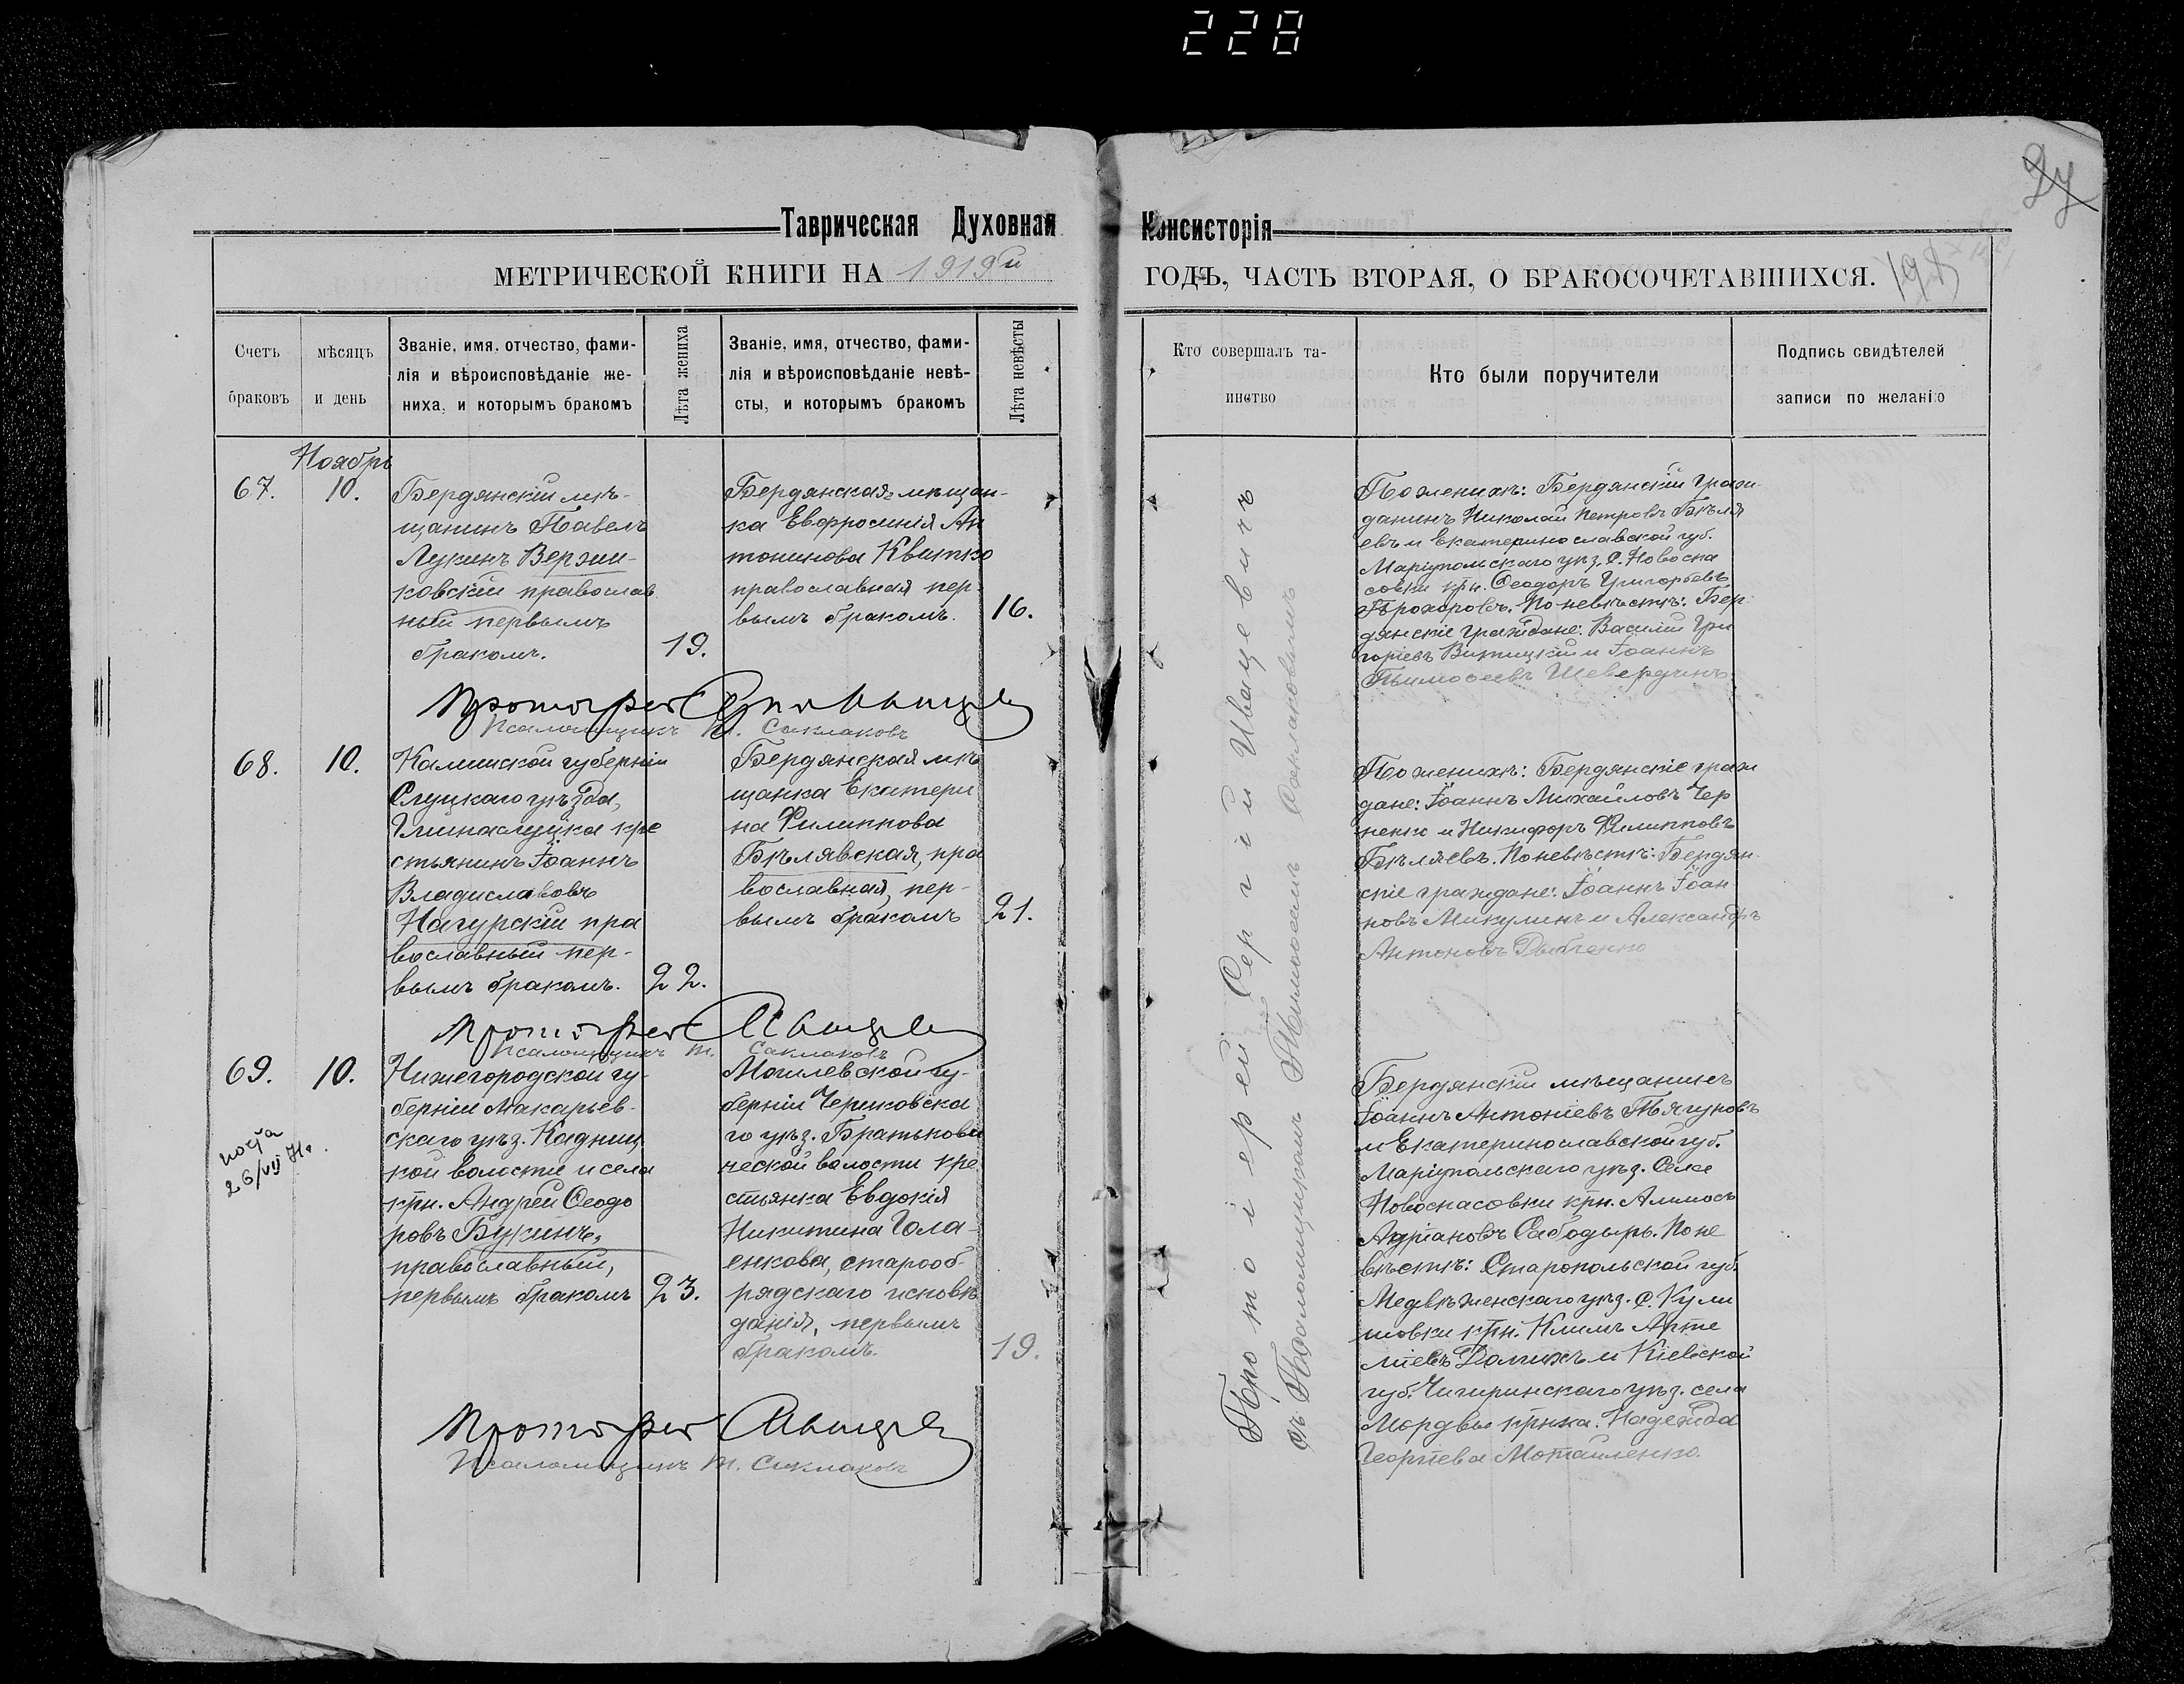 228
Таврическая Духовная Консисторія
МЕТРИЧЕСКОЙ КНИГИ НА 1919й ГОДЪ, ЧАСТЬ ВТОРАЯ, О БРАКОСОЧЕТАВШИХСЯ.
198
Счетъ браковъ
мѣсяцъ и день
Званіе, имя, отчество, фами-
лія и вѣроисповѣданіе же-
ниха, и которымъ бракомъ
Лѣта жениха
Званіе, имя, отчество, фами-
лія и вѣроисповѣданіе невѣ-
сты, и которымъ бракомъ
Лѣта невѣсты
Кто совершалъ та-
инство
Кто были поручители
Подпись свидѣтелей
записи по желанію
Ноябрь
67.
10.
Бердянскій мѣ-
щанинъ Павелъ
Лукинъ Вержи-
ковскій православ
ный первымъ
бракомъ.
19.
Бердянская мѣщан-
ка Евфросинія Ан
тонинова Квитко
православная пер
вымъ бракомъ.
16.
По женихѣ: Бердянскій граж
данинъ Николай Петровъ Бѣля
евъ и Екатеринославской губ.
Маріупольскаго уѣз. с. Новоспа
совки крн. Ѳеодоръ Григорьевъ
Прохоровъ. По невѣстѣ: Бер
дянскіе граждане: Василій Гри
горіевъ Витицкій и Іоаннъ
Тимоѳеевъ Шевердинъ
Протоіерей С. Иващевичъ
Псаломщикъ Т. Саклаковъ
68.
10.
Калишской губерніи
Слуцкаго уѣзда,
кре
стьянинъ Іоаннъ
Владиславовъ
Нагурскій пра
вославный пер-
вымъ бракомъ.
22.
Бердянская мѣ
щанка Екатери
на Филиппова
Бѣлявская, пра
вославная, пер-
вымъ бракомъ
21.
По женихѣ: Бердянскіе граж
дане: Іоаннъ Михайловъ Чер
ненко и Никифоръ Филипповъ
Бѣляевъ. По невѣстѣ: Бердян-
скіе граждане: Іоаннъ Іоан
новъ Микулинъ и Александръ
Антоновъ
Протоіерей С. Иващевичъ
Псаломщикъ Т. Саклаковъ
69.
10.
26/VII
Нижегородской гу-
берніи Макарьев-
скаго уѣз. Кадниц
кой волости и села
крн. Андрей Ѳеодо
ровъ Букинъ,
православный,
первымъ бракомъ
23.
Могилевской гу-
берніи Чериковска
го уѣз. Братькови
ческой волости кре
стьянка Евдокія
Никитина Гола-
енкова, старооб-
рядскаго исповѣ
данія, первымъ
бракомъ.
19.
Бердянскій мѣщанинъ
Іоаннъ Антоніевъ Тягуновъ
и Екатеринославской губ.
Маріупольскаго уѣз. Села
Новоспасовки крн.
Адріановъ Сабодырь. По не
вѣстѣ: Ставропольской губ.
Медвѣженскаго уѣз. с.
крн. Климъ Арте
міевъ и Кіевской
губ. Чигиринскаго уѣз. села
Мордвы крнка. Надежда
Георгіева Мотайленко.
Протоіерей С. Иващевичъ
Псаломщикъ Т. Саклаковъ
Протоіерей Сергій Иващевичъ
съ Псаломщикомъ Тимоѳеемъ Саклаковымъ